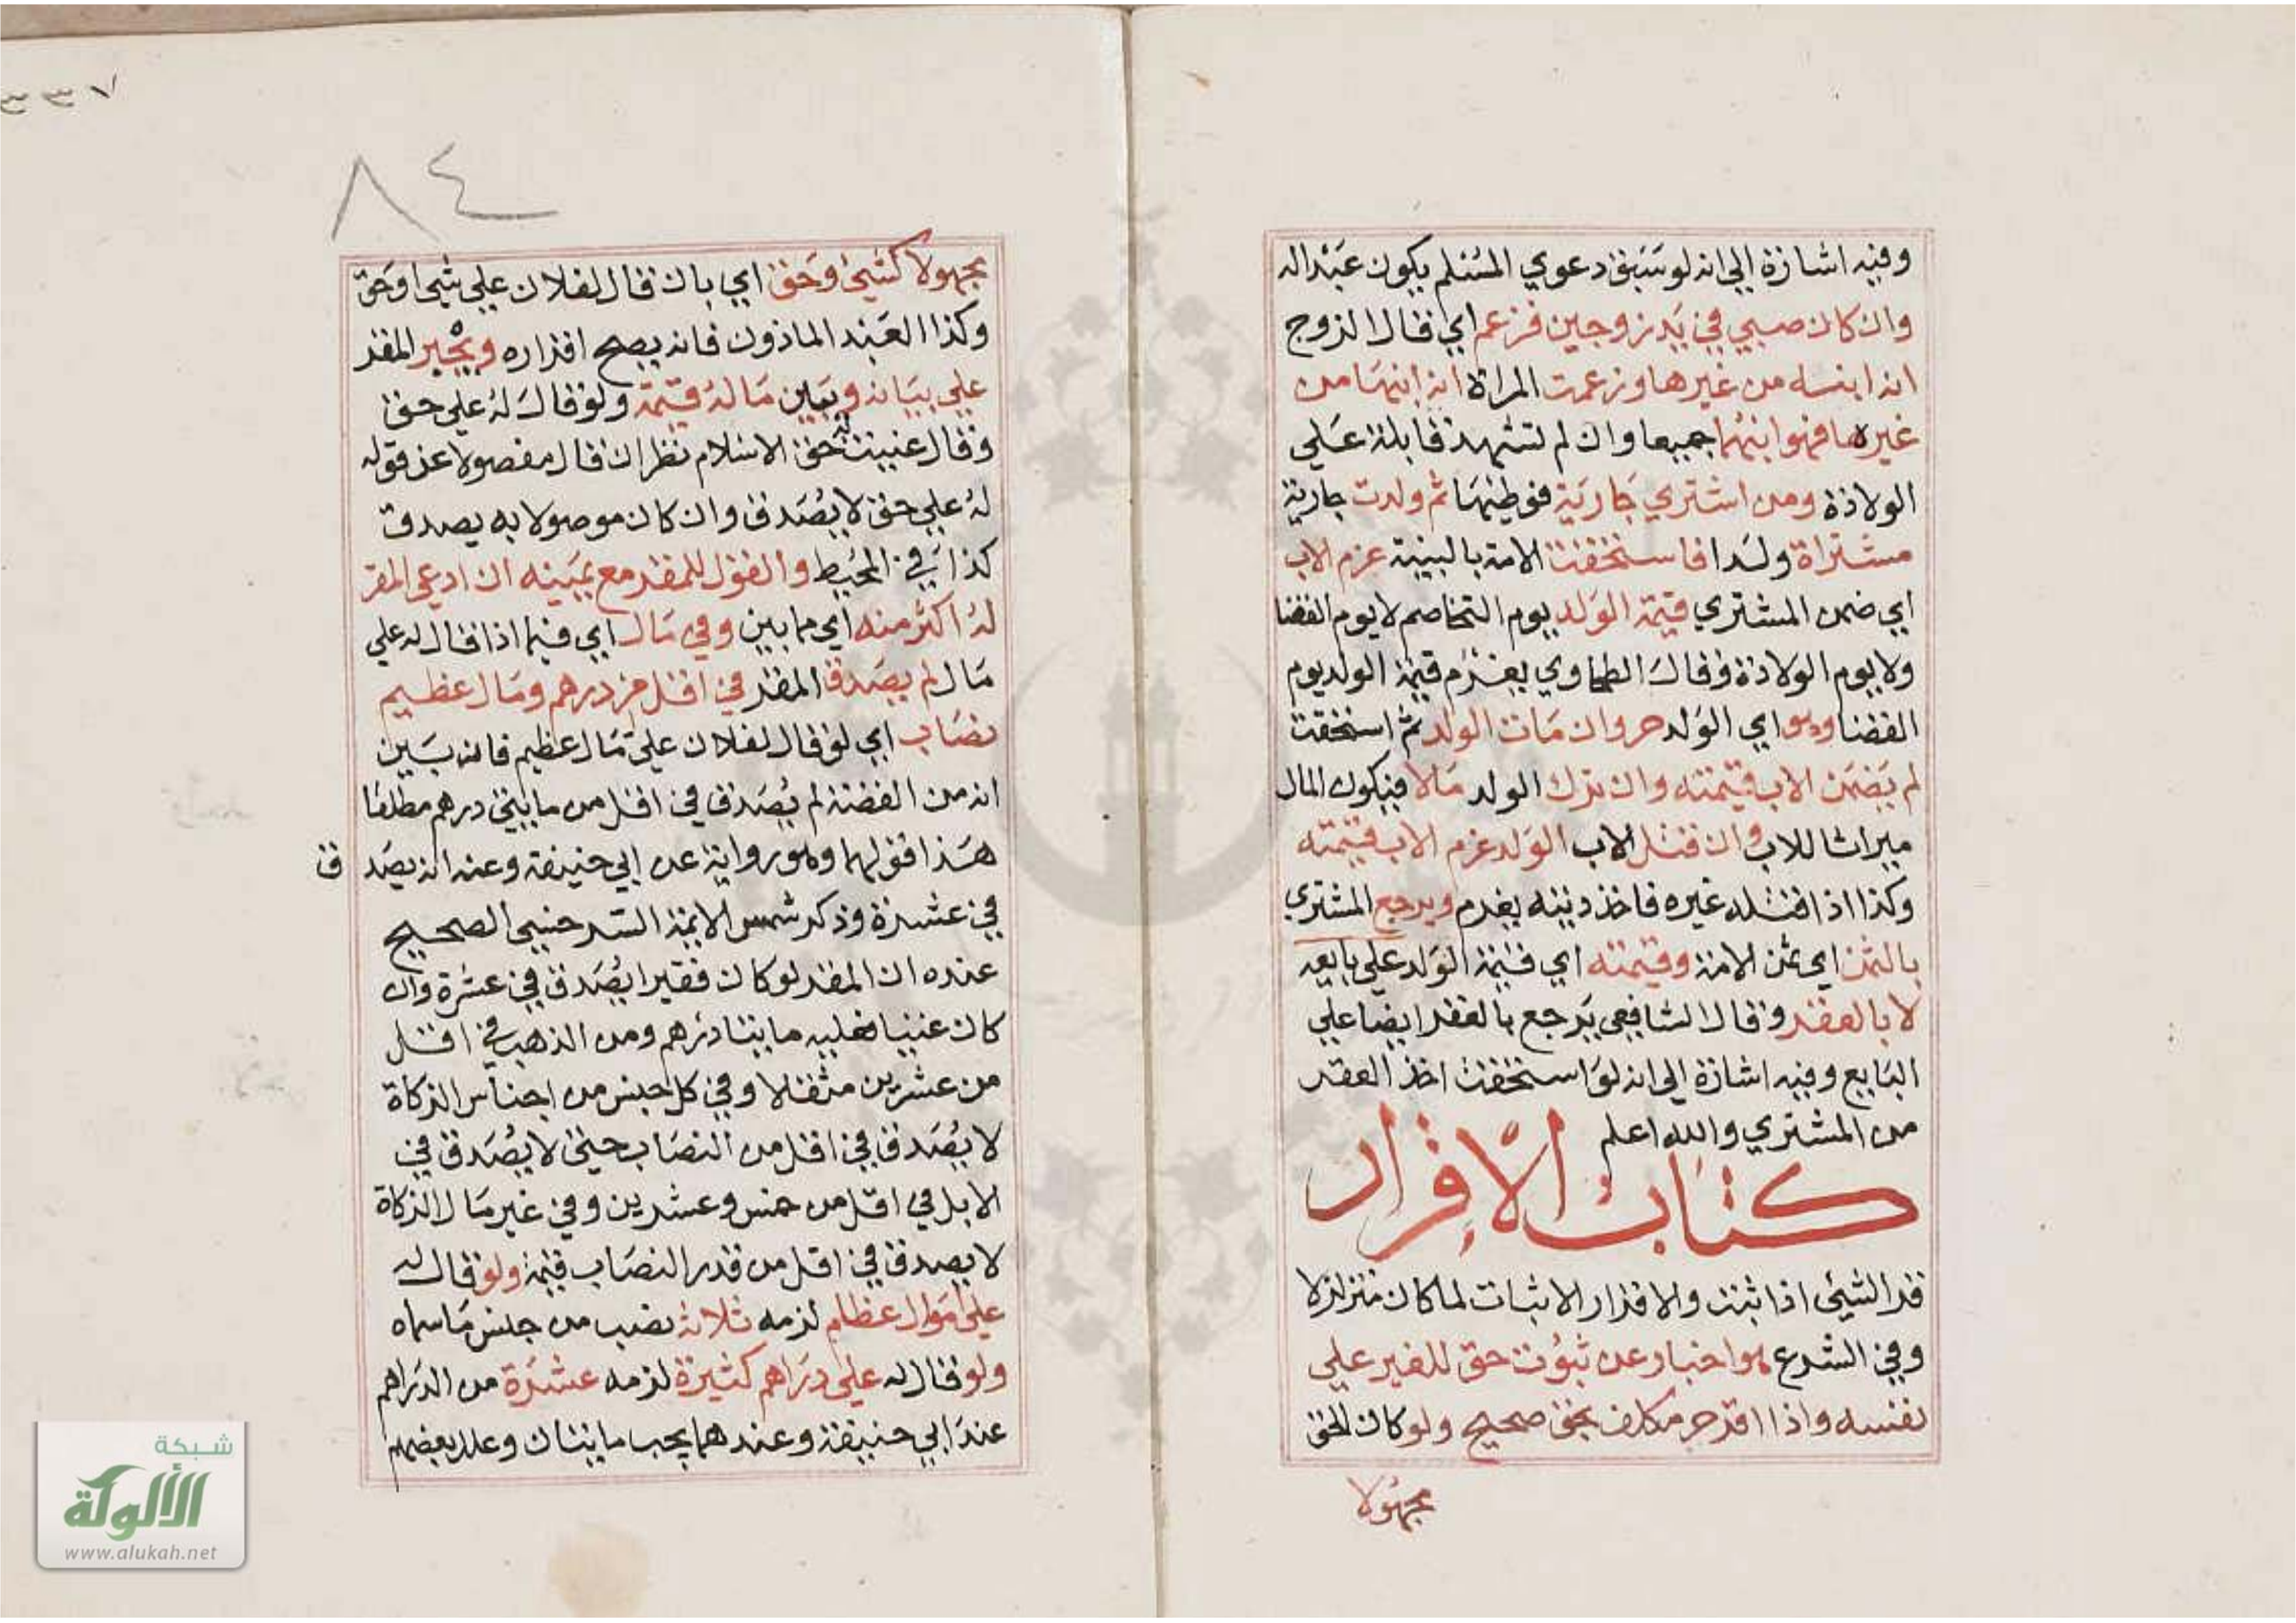 وفيه اشارة الي انه لو سبق دعوي المسلم يكون عبدا له
وان كان صبي في يد زوجين فزعم اي قال الزوج
انه ابنه من غيرها وزعمت المراة انه ابنها من
غيره فهو ابنهما جميعا وان لم تشهد قابلة علي
الولادة ومن اشتري جارية فوطيها ثم ولدت جارية
مشتراة ولدا فاستحقت الامة بالبينة غرم الاب
اي ضمن المشتري قيمة الولد يوم التخاصم لا يوم القضا
ولا يوم الولادة وقال الطحاوي يغرم قيمة الولد يوم
القضا وهو اي الولد حر وان مات الولد ثم استحقت
لم يضمن الاب قيمته وان ترك الولد مالا فيكون المال
ميراثا للاب وان قتل الاب الولد غرم الاب قيمته
وكذا اذا قتله غيره فاخذ ديته يغرم ويرجع المشتري
بالثمن اي ثمن الامة وقيمته اي قيمة الولد علي بايعه
لا بالعقر وقال الشافعي يرجع بالعقر ايضا علي
البايع وفيه اشارة الي انه لو استحقت اخذ العقر
من المشتري والله اعلم
كتاب الاقرار
قر الشيئ اذا ثبت والاقرار الاثبات لما كان متزلزلا
وفي الشرع هو اخبار عن ثبوت حق للغير علي
نفسه واذا اقر حر مكلف بحق صحيح ولو كان الحق
مجهولا
٣٣٧
٨٤
مجهولا كشيئ وحق اي بان قال لفلان علي شيئ او حق
وكذا العبد الماذون فانه يصح اقراره ويجبر المقر
علي بيانه ويبين ما له قيمة ولو قال له علي حق
وقال عنيت به حق الاسلام نظر ان قال مفصولا عن قوله
له علي حق لا يصدق وان كان موصولا به يصدق
كذا في المحيط والقول للمقر مع يمينه ان ادعي المقر
له اكثر منه اي مما بين وفي مال اي فيما اذا قال له علي
مال لم يصدق المقر في اقل من درهم ومال عظيم
نصاب اي لو قال لفلان علي مال عظيم فانه بين
انه من الفضة لم يصدق في اقل من مايتي درهم مطلقا
هذا قولهما وهو رواية عن ابي حنيفة وعنه انه يصدق
في عشرة وذكر شمس الايمة السرخسي الصحيح
عنده ان المقر لو كان فقيرا يصدق في عشرة وان
كان غنيا فعليه مايتا درهم ومن الذهب في اقل
من عشرين مثقالا وفي كل جنس من اجناس الزكاة
لا يصدق في اقل من النصاب حتي لا يصدق في
الابل في اقل من خمس وعشرين وفي غير مال الزكاة
لا يصدق في اقل من قدر النصاب قيمة ولو قال له
علي اموال عظام لزمه ثلاثة نصب من جنس ما سماه
ولو قال له علي دراهم كثيرة لزمه عشرة من الدراهم
عند ابي حنيفة وعندهما يجب مايتان وعلل بعضهم
شبكة
الألوكة
www.alukah.net